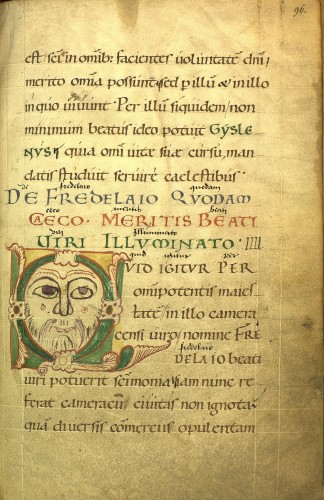 96.
est, sed in omnib; facientes uoluntatē dñi
merito omnia possunt, sed p illū & in illo
in quo uiuunt. Per illum siquidem non
minimum beatus ideo potuit GYSLE
NVS, quia omni uitae suae cursu, man
datis studuit seruire caelestibus.
fredelaio quodam
DE FREDELAIO QVODAM
ceco meritis beati
CAECO. MERITIS BEATI
uiri illuminato
VIRI ILLVMINATO. IIII
quid igitur per
QVID IGITVR PER
omnipotentis maies
tatē in illo camera
censi uiro, nomine FRE
fredelaio
DELAIO beati
uiri potuerit
iam nunc re
ferat cameracum ciuitas non ignota,
quā diuersis comerciis opulentam